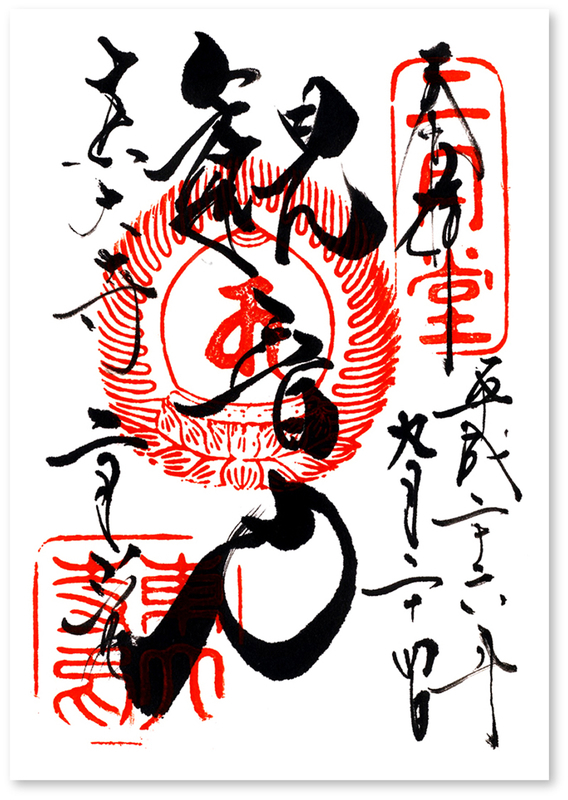 奉拝
二月堂
平成二十六年
九月二十四日
観音力
東大寺
二月堂